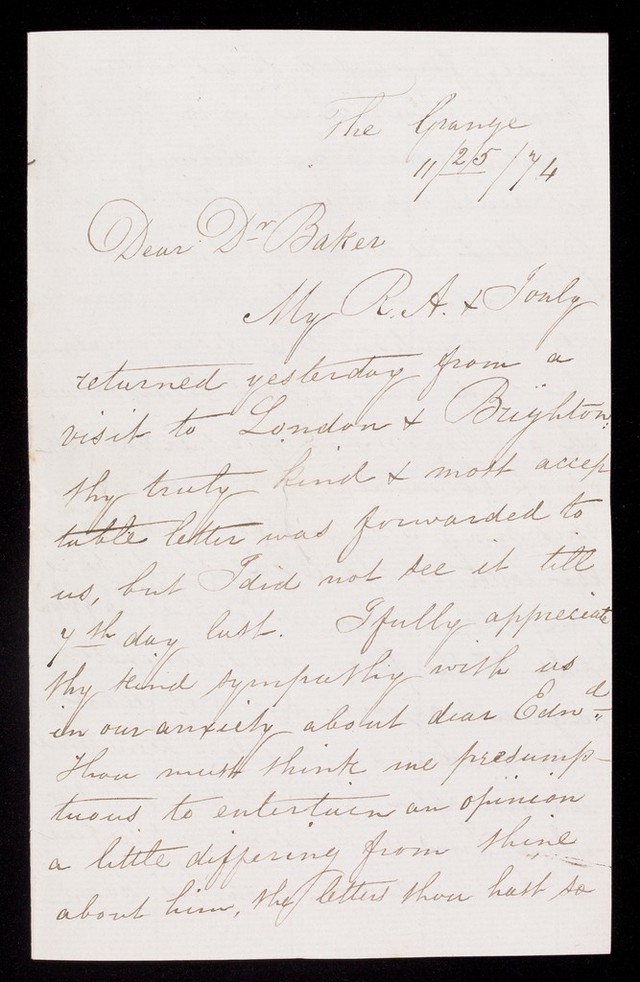 The Grange
11/25/74
Dear Dr Baker
My R. A. & I only
returned yesterday from a
visit to London & Brighton,
thy truly kind & most accep
table letter was forwarded to
us, but I did not see it till
7th day last. I fully appreciate
thy kind sympathy with us
in our anxiety about dear Ednd.
Thou must think me presump-
tuous to entertain an opinion
a little differing from thine
about him, the letters thou hast so